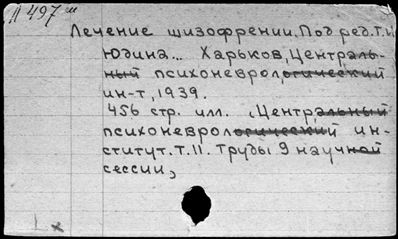 II 497 м
Лечение шизофрении. Под ред. Т. И
Юдина... Харьков, Централь-
ный психоневрологический
ин-т, 1939.
456 стр. илл. (Центральный
психоневрологический ин-
ститут. Т. II. Труды 9 научной
сессии)
1 x